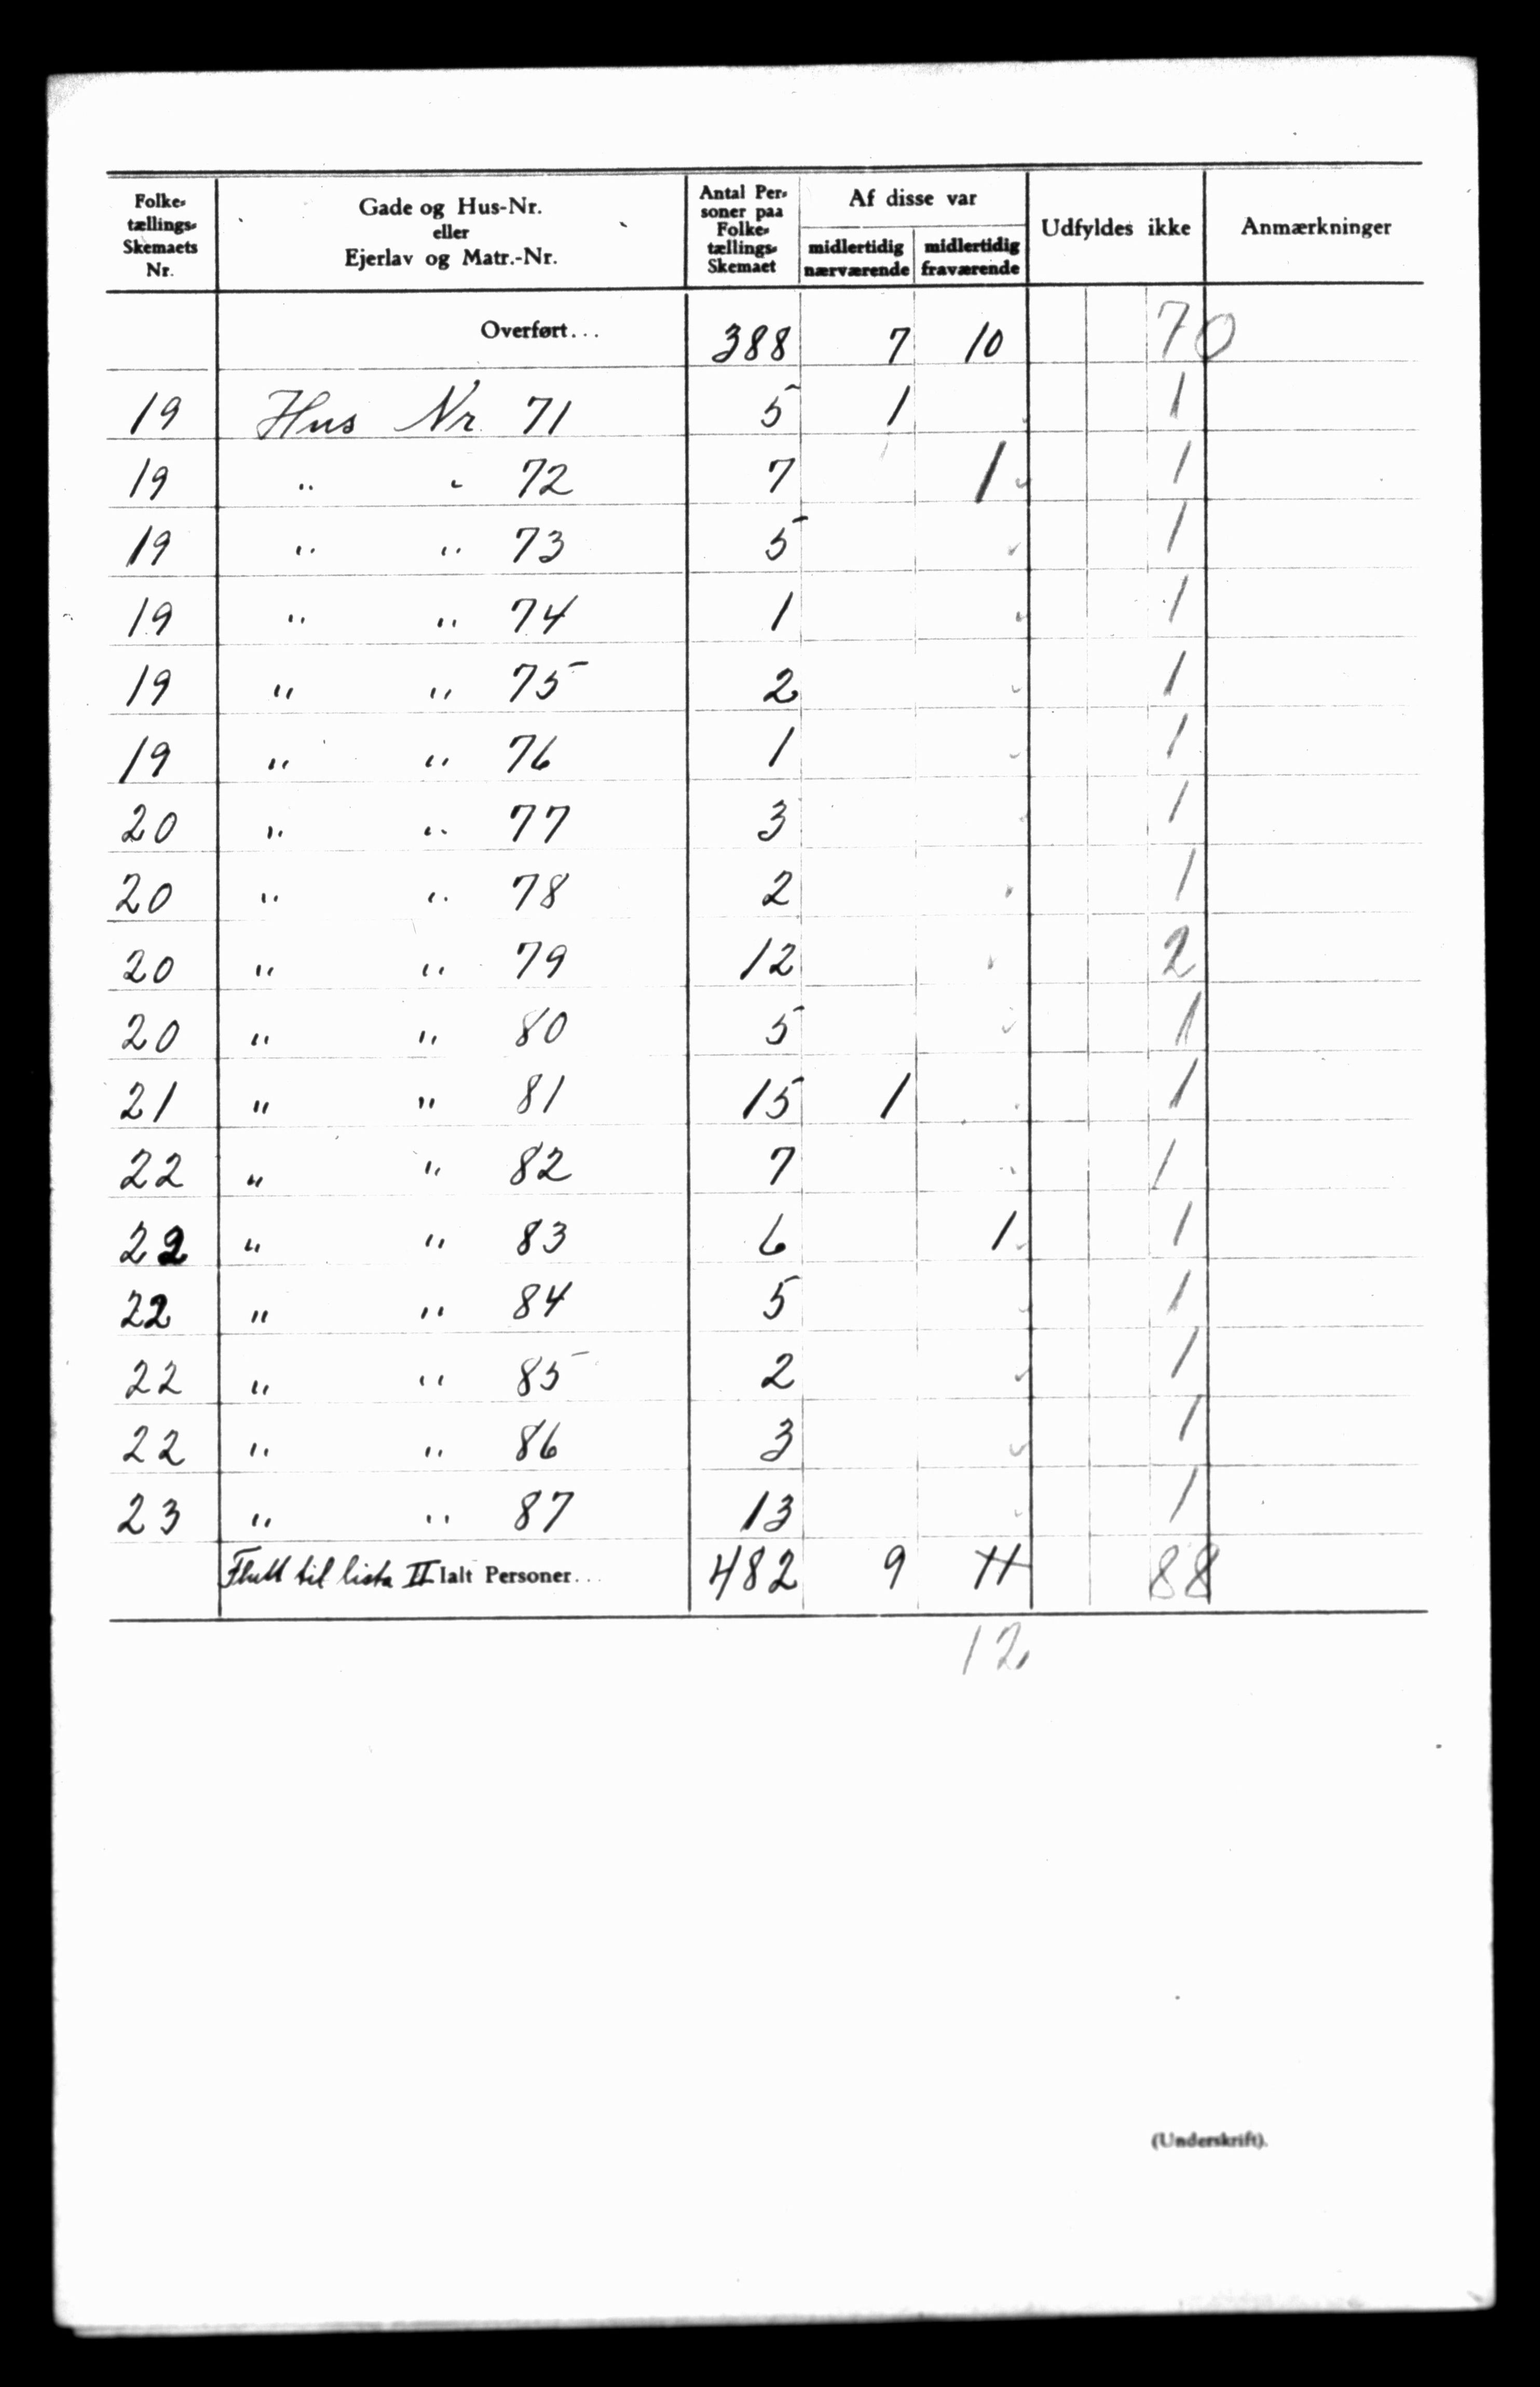 Folke- tællings- Skemaets Nr. Gade og Hus-Nr. eller Ejerlav og Matr.-Nr. Antal Per- soner paa Folke- tællings- Skemaet Af disse var midlertidig nærværende midlertidig fraværende Udfyldes ikke Anmærkninger
Overført... 388 7 10 70
19 Hus Nr. 71 5 1 1
19 " " 72 7 1 1
19 " " 73 5 1
19 " " 74 1 1
19 " " 75 2 1
19 " " 76 1 1
20 " " 77 3 1
20 " " 78 2 1
20 " " 79 12 2
20 " " 80 5 1
21 " " 81 15 1 1
22 " " 82 7 1
22 " " 83 6 1 1
22 " " 84 5 1
22 " " 85 2 1
22 " " 86 3 1
23 " " 87 13 1
Flutt til lista II Ialt Personer... 482 9 11 88
12
(Underskrift).